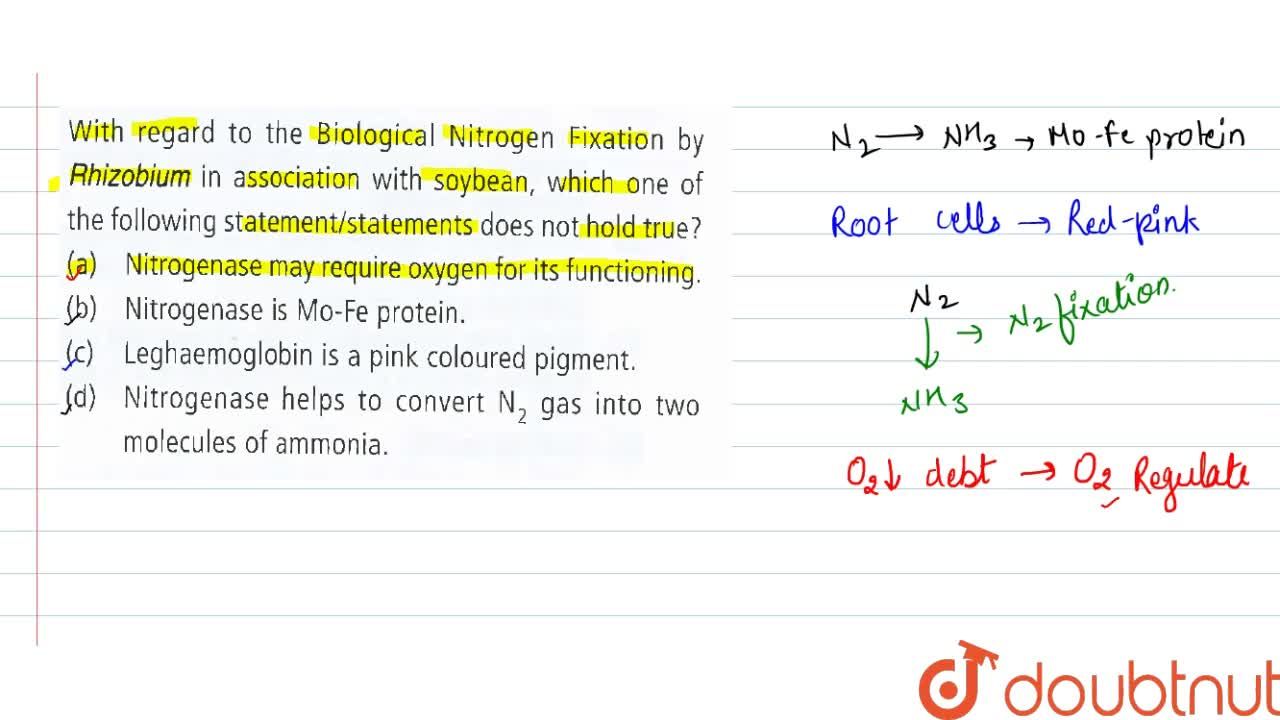 With regard to the Biological Nitrogen Fixation by
Rhizobium in association with soybean, which one of
the following statement/statements does not hold true?
(a) Nitrogenase may require oxygen for its functioning.
(b) Nitrogenase is Mo-Fe protein.
(c) Leghaemoglobin is a pink coloured pigment.
(d) Nitrogenase helps to convert N₂ gas into two
molecules of ammonia.
N₂ → NH₃ → Mo-fe protein
Root cells → Red-pink
N₂
↓ → N₂ fixation.
NH₃
O₂↓ debt → O₂ Regulate
doubtnut